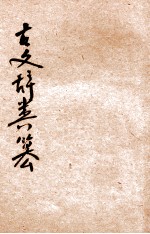 古文辞类纂